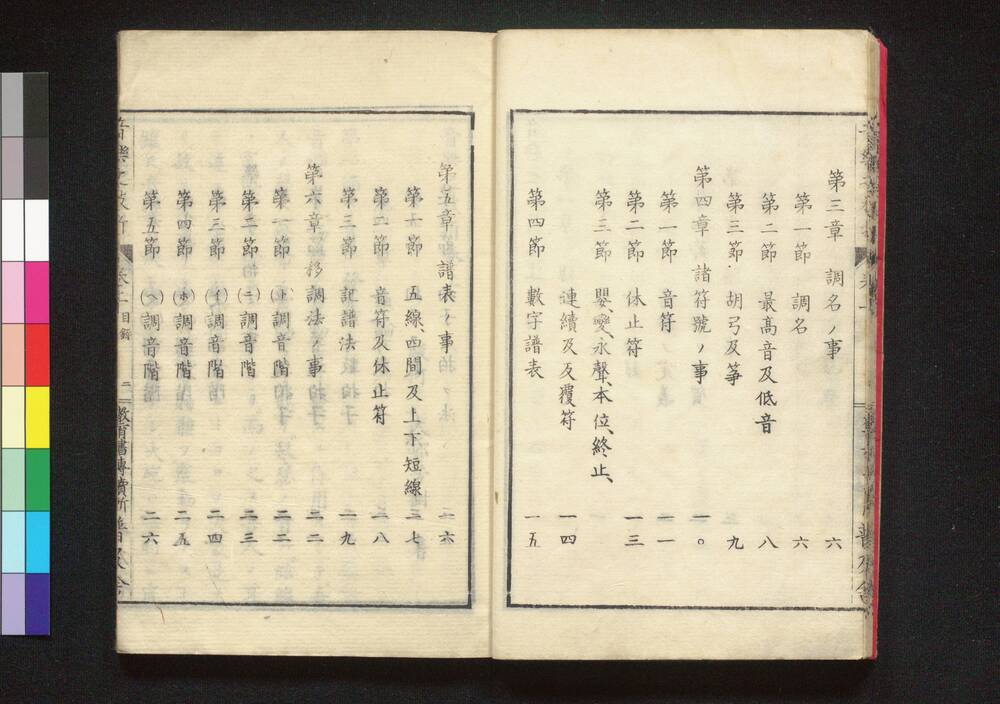 第三章 調名ノ事 六
第一節 調名 六
第二節 最高音及低音 八
第三節 胡弓及箏 九
第四章 諸符號ノ事 一〇
第一節 音符 一一
第二節 休止符 一三
第三節 嬰、變、永聲、本位、終止、
連續及反覆符 一四
第四節 數字譜表 一五
第五章 譜表ノ事 一六
第一節 五線、四間及上下短線 一七
第二節 音符及休止符 一八
第三節 記譜法 一九
第六章 移調法ノ事 二二
第一節 (ト)調音階 二二
第二節 (ニ)調音階 二三
第三節 (イ)調音階 二四
第四節 (ホ)調音階 二五
第五節 (ヘ)調音階 二六
目錄 二